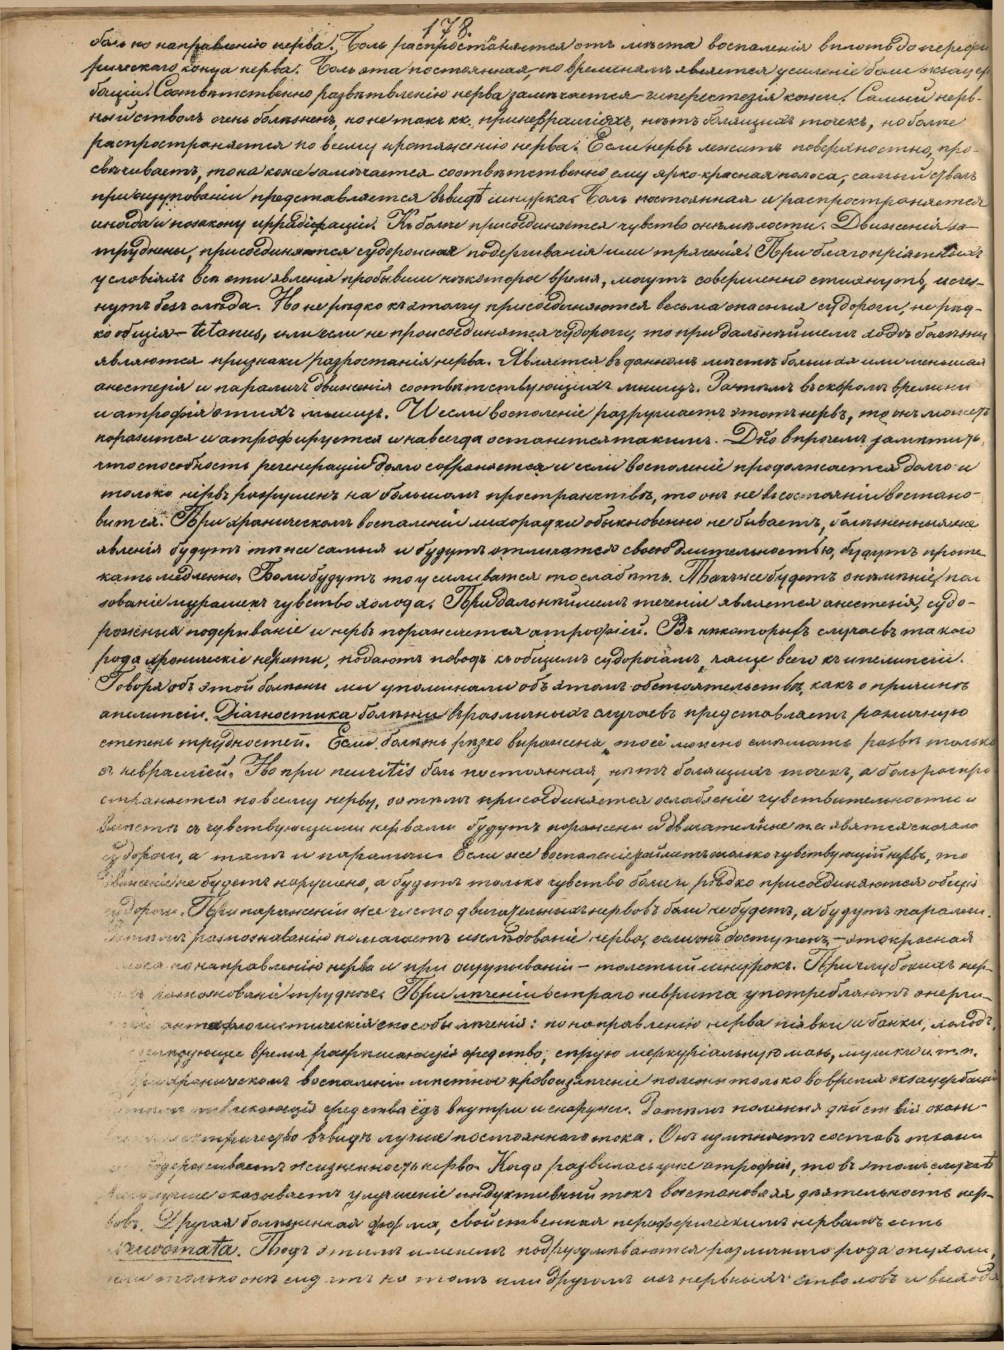 178.
боль по направленію нерва. Боль распространяется отъ мѣста воспаленія вплоть до перефе
рическаго конца нерва. Боль эта постоянная, по временамъ является усиленіе боли экзацер
баціи. Соотвѣтственно развѣтвленію нерва замѣчается гиперестезія кожи. Самый нерв-
ный стволъ очень болѣзненъ, но не такъ кк. при невралгіяхъ, нѣтъ болящихъ точекъ, но боли
распространяется по всему протяженію нерва. Если нервъ лежитъ поверхностно, про-
свѣчиваетъ, то на кожѣ замѣчается соотвѣтственно ему ярко-красная полоса, самый стволъ
при ощупываніи представляется въ видѣ шнурка. Боль постоянная и распространяется
иногда и по закону иррадіаціи. Къ боли присоединяется чувство онѣмѣлости. Движенія за-
труднены, присоединяются судорожная подергиванія или трясенія. При благопріятныхъ
условіяхъ всѣ эти явленія пробывши нѣкоторое время, могутъ совершенно стихнуть, исчез-
нуть безъ слѣда. Но не рѣдко къ этому присоединяются весьма опасныя судороги, не рѣд-
ко общія – tetanus, или если не присоединятся судороги, то при дальнѣйшемъ ходѣ болѣзни
являются признаки разростанія нерва. Является въ данномъ мѣстѣ большая или меньшая
анестезія и параличъ движенія соотвѣтствующихъ мышцъ. Затѣмъ въ скоромъ времени
и атрофія этихъ мышцъ. И если воспаленіе разрушаетъ этотъ нервъ, то онъ можетъ
поразится и атрофируется и навсегда останется такимъ. Дно впрочемъ замѣтить,
что способность регенераціи долго сохраняется и если воспаленіе продолжается долго и
только нервъ разрушенъ на большомъ пространствѣ, то онъ не въ состояніи востано-
вится. При хроническомъ воспаленіи лихорадки обыкновенно не бываетъ, болѣзненныя же
явленія будутъ тѣ же самыя и будутъ отличатся своею длительностью, будутъ проте
кать медленно. Боли будутъ то усиливатся то слабѣть. Также будетъ онѣмѣніе, пол
зованіе мурашекъ чувство холода. При дальнѣйшемъ теченіи является анестезія, судо-
рожныя подергиваніе и нервъ поражается атрофіей. Въ нѣкоторыхъ случаевъ такого
рода хроническіе невриты, подаютъ поводъ къ общимъ судорогамъ, чаще всего къ эпилепсіи.
Говоря объ этой болѣзни мы упоминали объ этомъ обстоятельствѣ, какъ о причинѣ
эпилепсіи. Діагностика болѣзни въ различныхъ случаевъ представляетъ различную
степень трудностей. Если болѣзнь рѣзко выражена, то её можно смѣшать развѣ только
съ невралгіей. Но при neuritis боль постоянная, нѣтъ болящихъ точекъ, а боль распро
страняется по всему нерву, затѣмъ присоединяется ослабленіе чувствительности и
вмѣстѣ съ чувствующими нервами будутъ поражены и двигательные т.е. явятся сначала
судороги, а тамъ и параличи. Если же воспаленіе займетъ только чувствующій нервъ, то
движеніе не будетъ нарушено, а будетъ только чувство боли и рѣдко присоединяются общія
судороги. При пораженіи же чисто двигательныхъ нервовъ боли не будетъ, а будутъ параличи.
распознаванію помагаетъ изслѣдованіе нерва, если онъ доступенъ, – это красная
полоса по направленію нерва и при ощупываніи – толстый шнурокъ. При глубокихъ нер-
вахъ распознованіе труднѣе. При лѣченіи остраго неврита употребляютъ энерги-
антифлогистическія способы лѣченія: по направленію нерва піявки и банки, холодъ,
слѣдующее время разрѣшающія средство; сѣрую меркуріальную мазь, мушки и т.п.
При хроническомъ воспаленіи мѣстное кровоизвлеченіе полезны только во время экзацербаціи
отвлекающія средства іодъ внутри и снаружи. Затѣмъ полезныя дѣйствія окажы-
электричество въ видѣ лучше постояннаго тока. Онъ измѣняетъ составъ ткани
поддерживаетъ жизненность нерва. Когда развилась уже атрофія, то въ этомъ случаѣ
оказываетъ улучшеніе индуктивный токъ востановляя дѣятельность нер-
вовъ. Другая болѣзненная форма, свойственная перефирическимъ нервамъ есть
neuromata. Подъ этимъ именемъ подразумѣваются различнаго рода опухоли,
если только онѣ сидятъ на томъ или другомъ изъ нервныхъ стволовъ и выхода